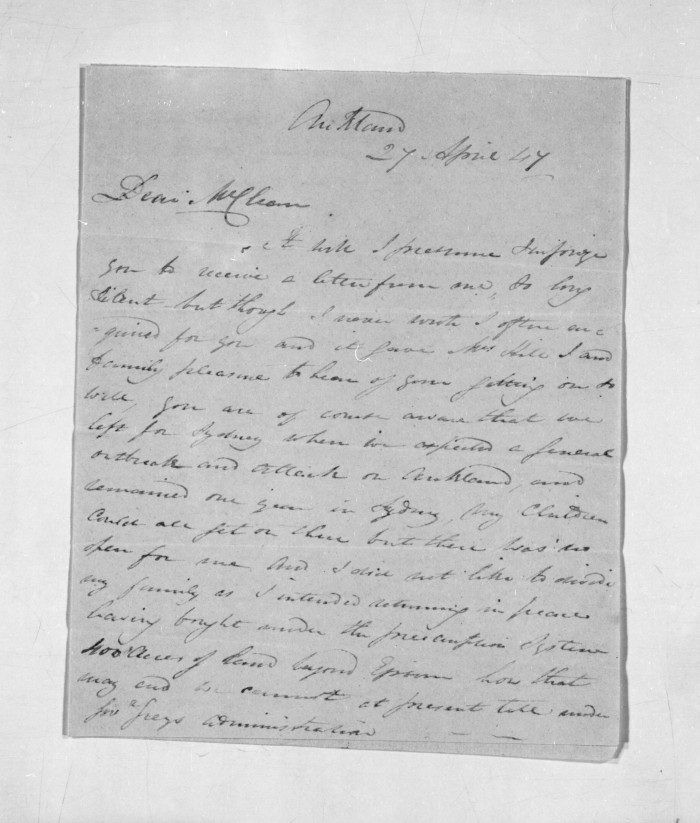 Auckland
27 April 47
Dear McClean
It will I presume surprise
you to receive a letter from me, so long
silent but though I never wrote I often en-
-quired for you and it gave Mrs Hill I and
family pleasure to hear of your getting on so
well, you are of course aware that we
left for Sydney when we expected a general
outbreak and attack on Auckland, and
remained one year in Sydney, My Children
could all get on there but there was no
open for me and I did not like to divide
my family as I intended returning in peace
having bought under the preemption system
400 Acres of land beyond Epsom how that
may end we cannot at present tell under
Govr Greys administration